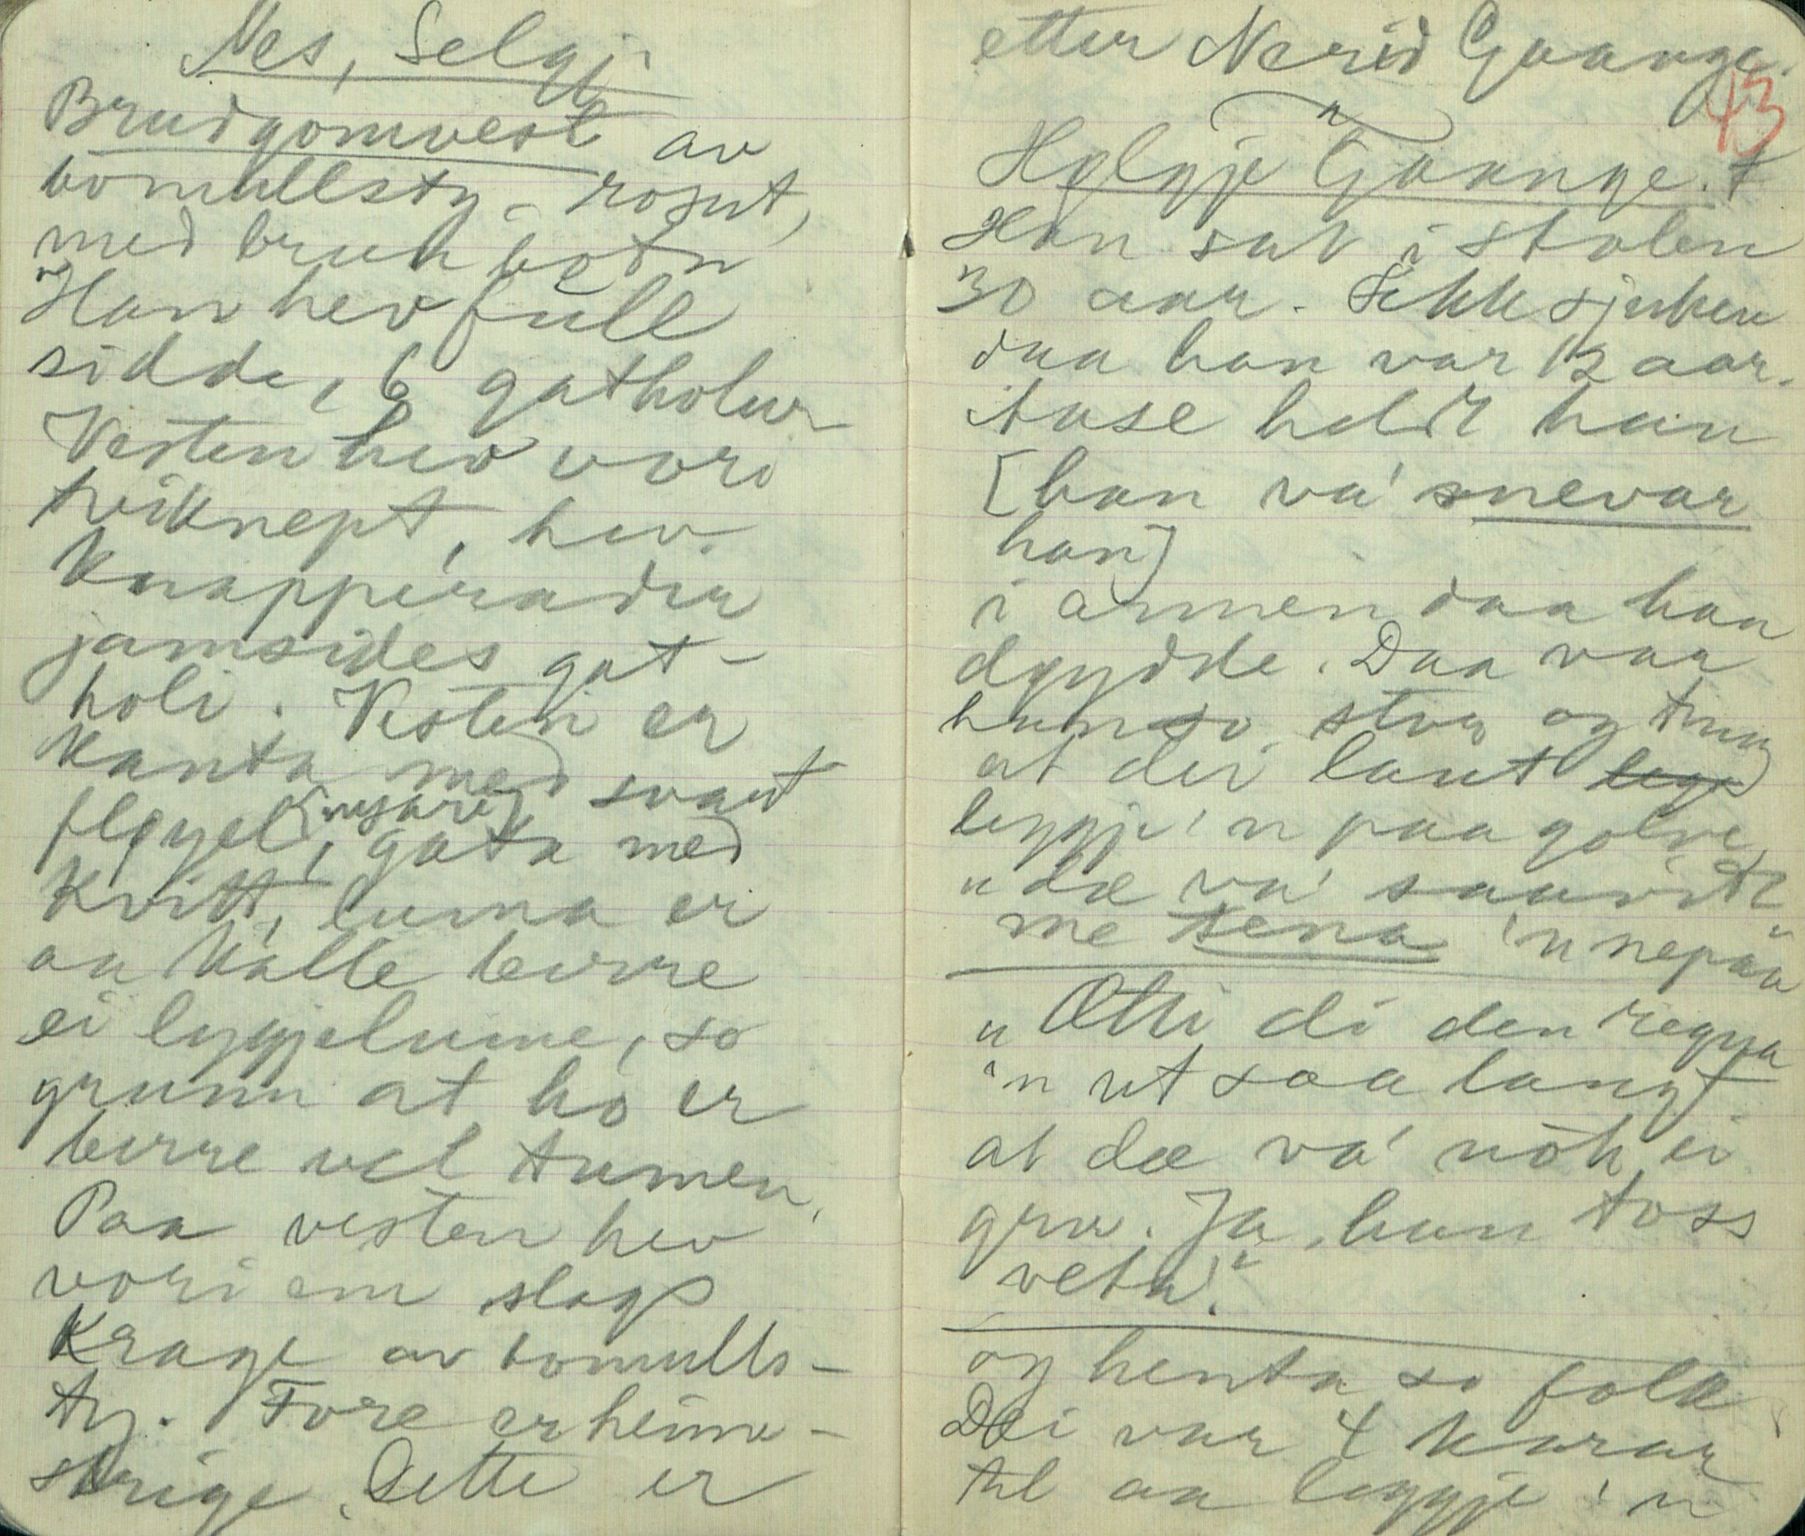 Nes, Seløj.
Brudgomvest av
bomullsty, rosut,
med bruk botn
Han hev full
sidde, 6 gatholur
Vesten hev vori
tviknept, hev
knapperadir
jamsides gat-
holi. Vesten er
kanta med svart
fløyel (mjore), gata med
kvitt, luma er
aa kalle berre
ei lyggjelume, so
grunn at ho er
berre vel tumen.
Paa vesten hev
vori ein slags
krage av bomulls-
ty. Fore er heime-
strige. Dette er
etter Nerid Gaange.
43
Hølgje Gaange. †
Han sat i stolen
30 aar. Fekk sjuken
daa han var 12 aar.
Huse heldt han
[han va' snevar
han]
i armen daa han
døydde. Daa var
han so stor og tung
at dei laut lege
leggje 'n paa golve
"dæ va' saavidt
me tena 'n nepaa"
"Otti di den regja
'n ut saa langt
at dæ va' nók ei
gru. Ja, han toss
veta!"
og henta so folk
Dei var 4 karar
til aa leggje 'n